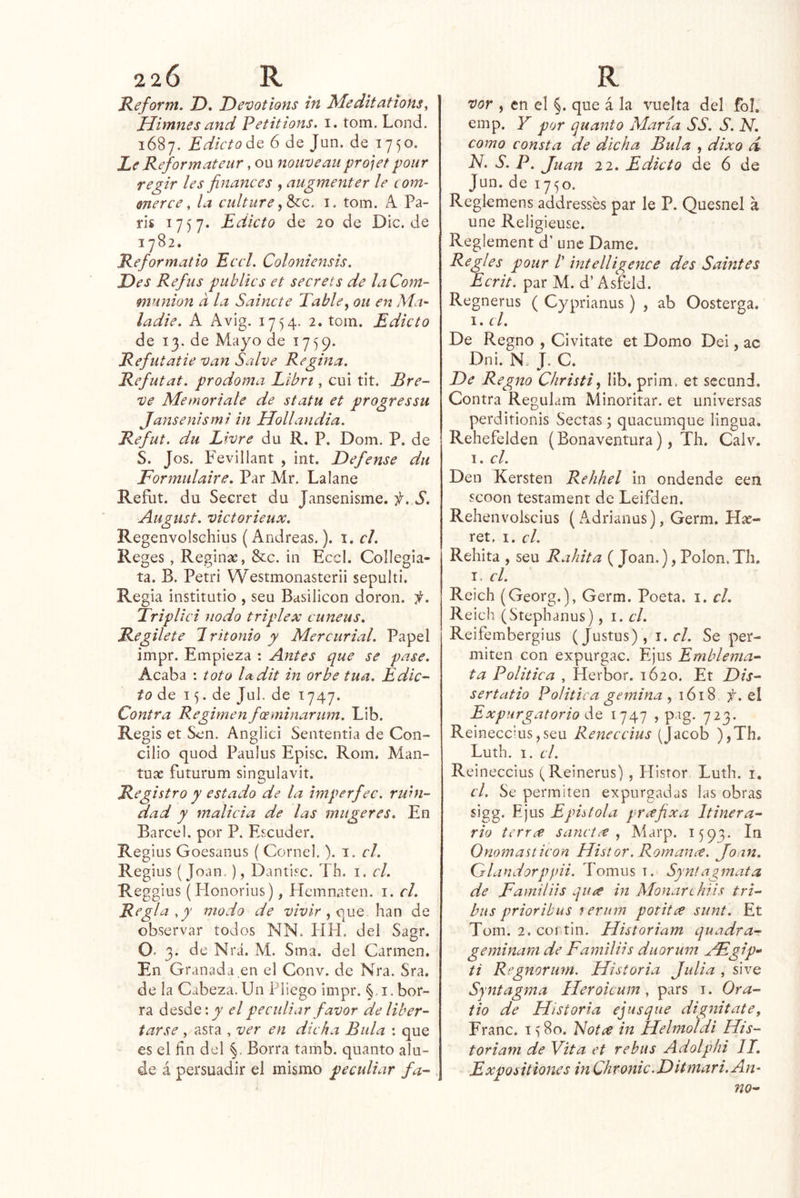 226 R
Reform. D. Devotions in Meditations,
Himnes and Petitions. 1. tom. Lond.
1687. Edicto de 6 de Jun. de 1750.
Le Reformateur, ou nouveau projet pour
regir les finances , augmenter le com-
merce, la culture, &c. 1. tom. A Pa-
ris 1757. Edicto de 20 de Dic. de
1782.
Reformatio Eccl. Coloniensis.
Des Refus publics et secrets de la Com-
munion á la Saincte Table, ou en Ma-
ladie. A Avig. 1754. 2. tom. Edicto
de 13. de Mayo de 1759.
Refutatie van Salve Regina.
Refutat. prodoma Libri, cui tit. Bre-
ve Memoriale de statu et progressu
Jansenismi in Hollandia.
Refut. du Livre du R. P. Dom. P. de
S. Jos. Fevillant , int. Defense du
Formulaire. Par Mr. Lalane
Refut. du Secret du Jansenisme. ℣. S.
August. victorieux.
Regenvolschius ( Andreas. ). 1. cl.
Reges, Reginæ, &c. in Eccl. Collegia-
ta. B. Petri Westmonasterii sepulti.
Regia institutio , seu Basilicon doron. ℣.
Triplici nodo triplex cuneus.
Regilete Tritonio y Mercurial. Papel
impr. Empieza : Antes que se pase.
Acaba : toto ladit in orbe tua. Edic-
to de 15. de Jul. de 1747.
Contra Regimen fœminarum. Lib.
Regis et Sen. Anglici Sententia de Con-
cilio quod Paulus Episc. Rom. Man-
tuæ futurum singulavit.
Registro y estado de la imperfec. ruin-
dad y malicia de las mugeres. En
Barcel. por P. Escuder.
Regius Goesanus ( Cornel. ). 1. cl.
Regius ( Joan. ), Dantisc. Th. 1. cl.
Reggius ( Honorius ) , Hemnaten. 1. cl.
Regla , y modo de vivir , que han de
observar todos NN. HH. del Sagr.
O. 3. de Nrá. M. Sma. del Carmen.
En Granada en el Conv. de Nra. Sra.
de la Cabeza. Un Pliego impr. §. 1. bor-
ra desde : y el peculiar favor de liber-
tarse , asta , ver en dicha Bula : que
es el fin del §. Borra tamb. quanto alu-
de á persuadir el mismo peculiar fa-
R
vor , en el §. que á la vuelta del fol.
emp. Y por quanto María SS. S. N.
como consta de dicha Bula , dixo á
N. S. P. Juan 22. Edicto de 6 de
Jun. de 1750.
Reglemens addressès par le P. Quesnel à
une Religieuse.
Reglement d' une Dame.
Regles pour l' intelligence des Saintes
Ecrit. par M. d' Asfeld.
Regnerus ( Cyprianus ) , ab Oosterga.
1. cl.
De Regno , Civitate et Domo Dei , ac
Dni. N. J. C.
De Regno Christi, lib. prim. et secund.
Contra Regulam Minoritar. et universas
perditionis Sectas ; quacumque lingua.
Rehefelden ( Bonaventura ) , Th. Calv.
1. cl.
Den Kersten Rehhel in ondende een
scoon testament de Leifden.
Rehenvolscius ( Adrianus ), Germ. Hæ-
ret. 1. cl.
Rehita , seu Rahita ( Joan. ), Polon. Th.
1. cl.
Reich (Georg.), Germ. Poeta. 1. cl.
Reich (Stephanus) , 1. cl.
Reifembergius ( Justus ) , 1. cl. Se per-
miten con expurgac. Ejus Emblema-
ta Politica , Herbor. 1620. Et Dis-
sertatio Politica gemina , 1618 ℣. el
Expurgatorio de 1747 , pag. 723.
Reineccius, seu Reneccius (Jacob ), Th.
Luth. 1. cl.
Reineccius ( Reinerus) , Histor Luth. 1.
cl. Se permiten expurgadas las obras
sigg. Ejus Epistola præfixa Itinera-
rio terræ sanctæ , Marp. 1593. In
Onomasticon Histor. Romanæ. Joan.
Glandorppii. Tomus 1. Syntagmata
de Familiis quæ in Monarchiis tri-
bus prioribus rerum potitæ sunt. Et
Tom. 2. contin. Historiam quadra-
geminam de Familiis duorum Ægip-
ti Regnorum. Historia Julia , sive
Syntagma Heroicum , pars 1. Ora-
tio de Historia ejusque dignitate,
Franc. 1580. Notæ in Helmoldi His-
toriam de Vita et rebus Adolphi II.
Expositiones in Chronic. Ditmari. An-
no-